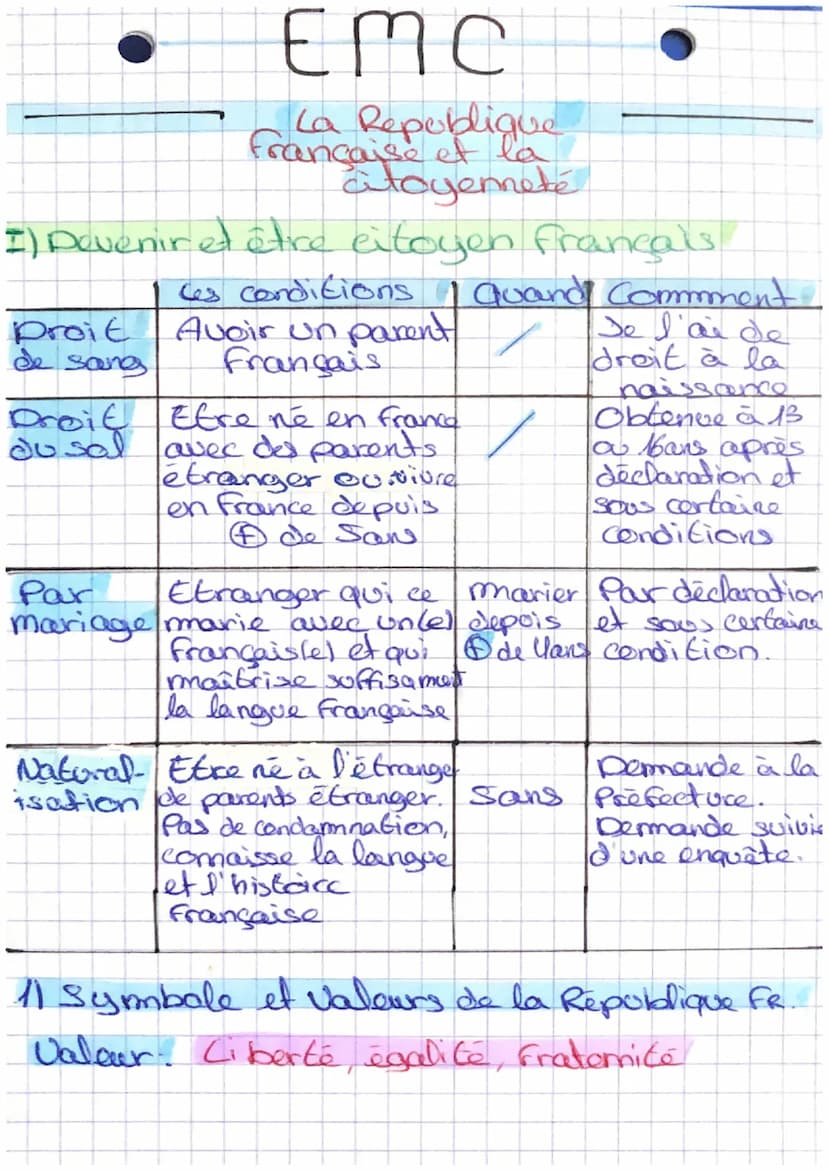 EMC
La Republique
française et la
citoyenneté
I) Devenir et être citoyen français
Les conditions Quand Commment
Droit
de sang
Avoir un parent
français
De l'ai de
droit à la
naissance
Droit
du sol
Etre né en france
avec des parents
étranger ou vivre
en france depuis
+ de 5ans
Obtenue à 13
ou 16ans après
déclaration et
sous certaine
conditions
Par
mariage
Etranger qui ce
marie avec un(e)
français(e) et qui
maîtrise suffisament
la langue française
marier
depuis
+ de 4ans
Par déclaration
et sous certaine
condition.
Natural-
isation
Etre né à l'étranger
de parents étranger.
Pas de condamnation,
connaisse la langue
et l'histoire
française
5ans
Demande à la
Préfecture.
Demande suivie
d'une enquête.
1) Symbole et Valeurs de la République FR.
Valeur: Liberté, égalité, fraternité